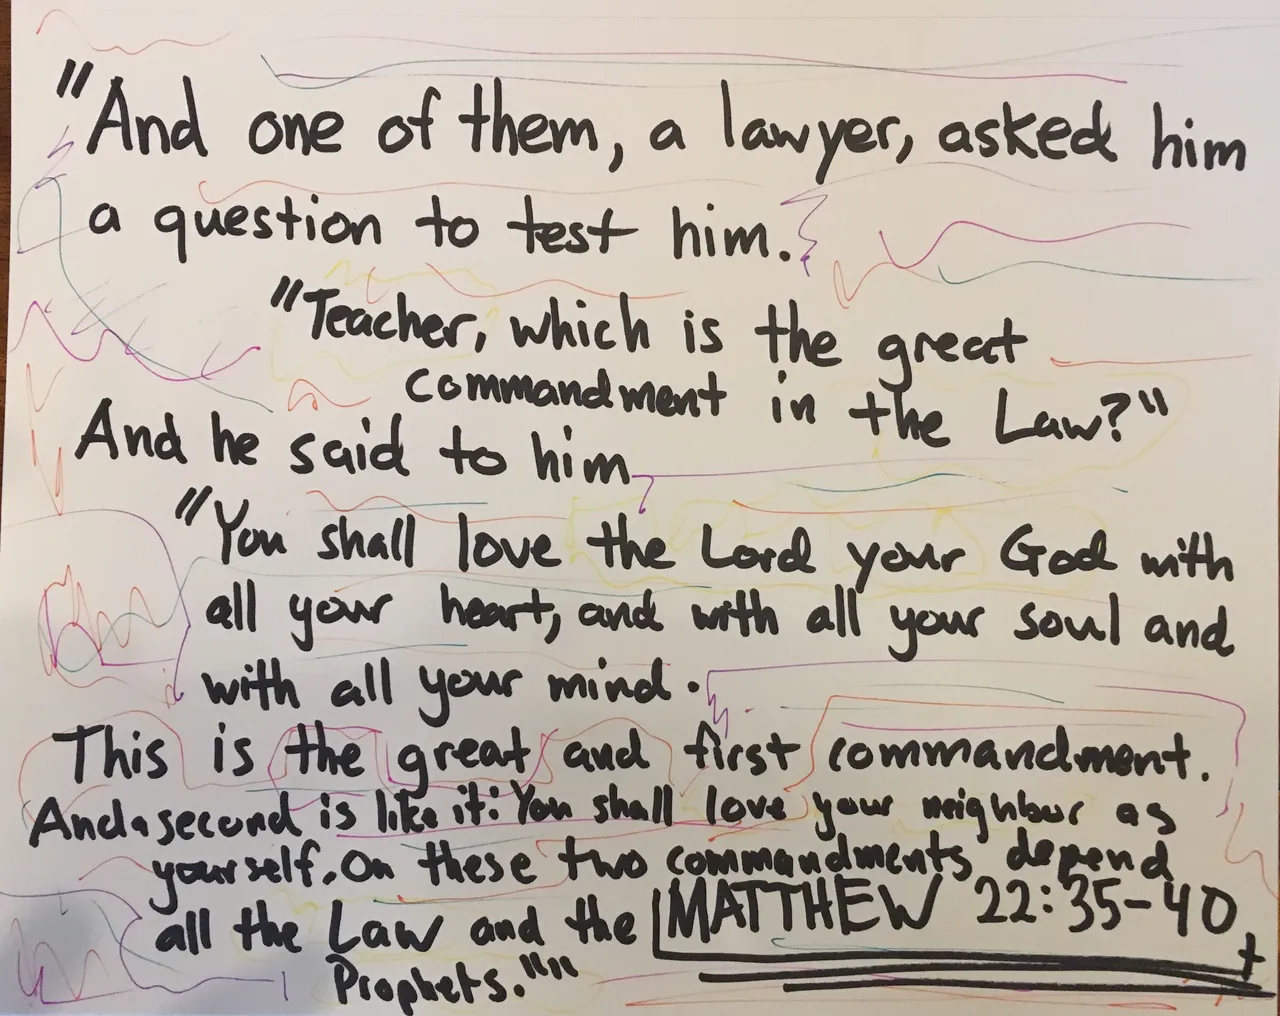 "And one of them, a lawyer, asked him
a question to test him.
"Teacher, which is the great
commandment in the Law?"
And he said to him
"You shall love the Lord your God with
all your heart, and with all your soul and
with all your mind.
This is the great and first commandment.
And a second is like it: You shall love your neighbor as
yourself. On these two commandments depend
all the Law and the
Prophets.""
MATTHEW 22:35-40